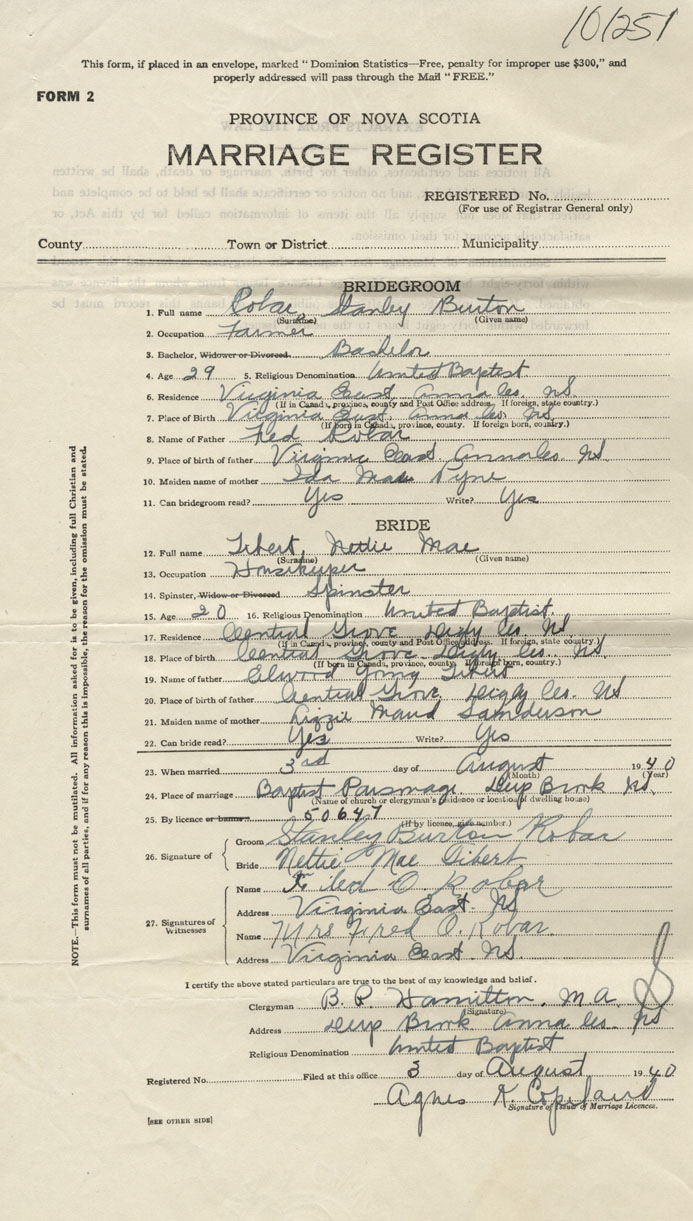 101251
This form, if placed in an envelope, marked "Dominion Statistics—Free, penalty for improper use $300," and
properly addressed will pass through the Mail "FREE."
FORM 2
PROVINCE OF NOVA SCOTIA
MARRIAGE REGISTER
REGISTERED No.
(For use of Registrar General only)
County Town or District Municipality
BRIDEGROOM
1. Full name Robar, Stanley Burton
(Surname) (Given name)
2. Occupation Farmer
3. Bachelor, Widower or Divorced Bachelor
4. Age 29 5. Religious Denomination United Baptist
6. Residence Virginia East Anna Co. NS
(If in Canada, province, county and Post Office address. If foreign, state country.)
7. Place of Birth Virginia East Anna Co. NS
(If born in Canada, province, county. If foreign born, country.)
8. Name of Father Fred Robar
9. Place of birth of father Virginia East Anna Co. NS
10. Maiden name of mother Ida Pyne
11. Can bridegroom read? Yes Write? Yes
BRIDE
12. Full name Tibert, Nettie Mae
(Surname) (Given name)
13. Occupation Housekeeper
14. Spinster, Widow or Divorced Spinster
15. Age 20 16. Religious Denomination United Baptist
17. Residence Central Grove Digby Co. NS
(If in Canada, province, county and Post Office address. If foreign, state country.)
18. Place of birth Central Grove Digby Co. NS
(If born in Canada, province, county. If foreign born, country.)
19. Name of father Elwood Tibert
20. Place of birth of father Central Grove, Digby Co. NS
21. Maiden name of mother Lizzie Maud
22. Can bride read? Yes Write? Yes
23. When married 3rd day of August 1940
(Month) (Year)
24. Place of marriage Baptist Parsonage Deep Brook NS.
(Name of church or clergyman's residence or location of dwelling house)
25. By licence or banns 50647
(If by licence, give number.)
26. Signature of { Groom Stanley Burton Robar
Bride Nettie Mae Tibert
27. Signatures of Witnesses { Name O. Robar
Address Virginia East NS
Name Mrs Fred O. Robar
Address Virginia East NS.
I certify the above stated particulars are true to the best of my knowledge and belief.
Clergyman B. P. Hamilton, M.A.
(Signature)
Address Deep Brook Anna Co. NS
Religious Denomination United Baptist
Registered No. Filed at this office 3 day of August 1940
Agnes K. Copeland
Signature of Issuer of Marriage Licences.
[SEE OTHER SIDE]
NOTE.—This form must not be mutilated. All information asked for is to be given, including full Christian and
surnames of all parties, and if for any reason this is impossible, the reason for the omission must be stated.